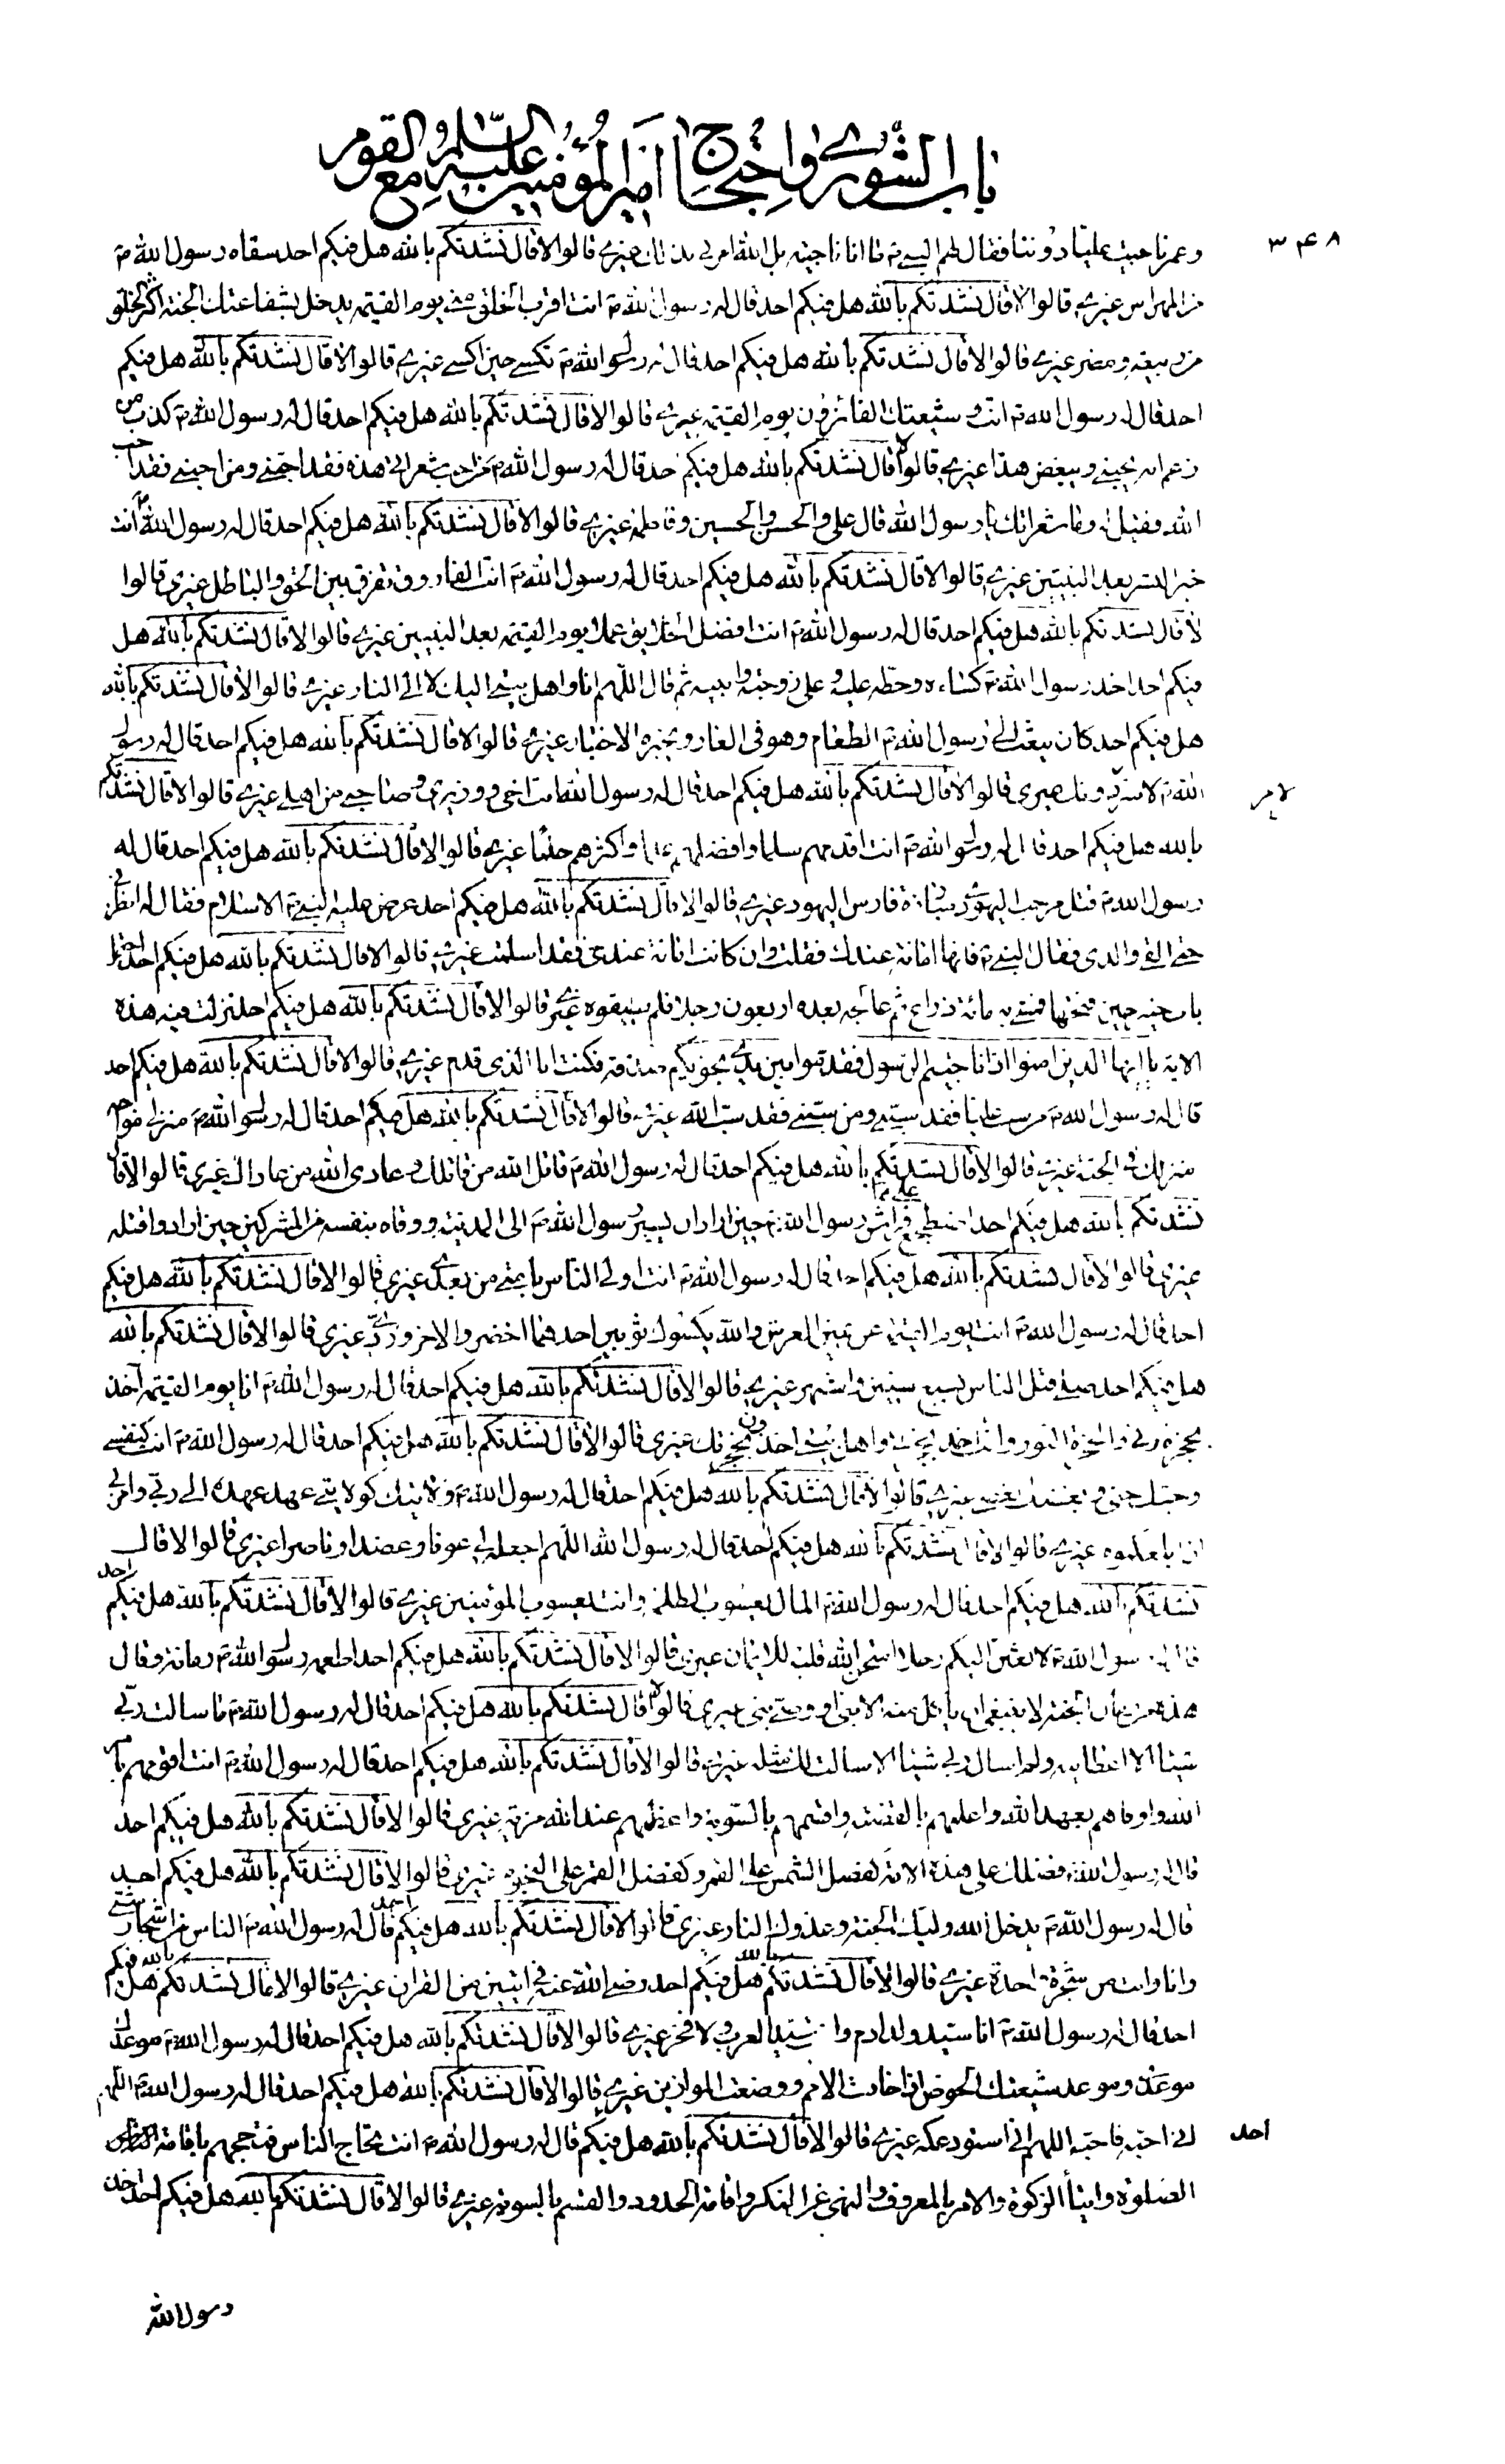 باب الشورى واحتجاج امير المؤمنين عليه السلم مع القوم
٣٤٨
وعمر ناجيت عليا دوننا فقال لهم النبي ص ما انا ناجيته بل الله امرني بذلك غيري قالوا لا قال نشدتكم بالله هل فيكم احد سقاه رسول الله ص
من المهراس غيري قالوا لا قال نشدتكم بالله هل فيكم احد قال له رسول الله ص انت اقرب الخلق مني يوم القيمة يدخل بشفاعتك الجنة اكثر الخلق
من ربيعة ومضر غيري قالوا لا قال نشدتكم بالله هل فيكم احد قال له رسول الله ص تكسى حين اكسى غيري قالوا لا قال نشدتكم بالله هل فيكم
احد قال له رسول الله ص انت وشيعتك الفائزون يوم القيمة غيري قالوا لا قال نشدتكم بالله هل فيكم احد قال له رسول الله ص كذب من
زعم انه يحبني ويبغض هذا غيري قالوا لا قال نشدتكم بالله هل فيكم احد قال له رسول الله ص من احب شعراتي هذه فقد احبني ومن احبني فقد احب
الله فقيل له وما شعراتك يا رسول الله قال علي والحسن والحسين وفاطمة غيري قالوا لا قال نشدتكم بالله هل فيكم احد قال له رسول الله ص انت
خير البشر بعد النبيين غيري قالوا لا قال نشدتكم بالله هل فيكم احد قال له رسول الله ص انت الفاروق تفرق بين الحق والباطل غيري قالوا
لا قال نشدتكم بالله هل فيكم احد قال له رسول الله ص انت افضل الخلايق عملا يوم القيمة بعد النبيين غيري قالوا لا قال نشدتكم بالله هل
فيكم احد اخذ رسول الله ص كساءه وحطه عليه وعلى زوجته وابنيه ثم قال اللهم انا واهل بيتي اليك لا الى النار غيري قالوا لا قال نشدتكم بالله
هل فيكم احد كان يبعث الى رسول الله ص الطعام وهو في الغار ويخبره الاخبار غيري قالوا لا قال نشدتكم بالله هل فيكم احد قال له رسول
الله ص لا سر دونك غيري قالوا لا قال نشدتكم بالله هل فيكم احد قال له رسول الله انت اخي ووزيري وصاحبي من اهلي غيري قالوا لا قال نشدتكم
بالله هل فيكم احد قال له رسول الله ص انت اقدمهم سلما وافضلهم علما واكثرهم حلما غيري قالوا لا قال نشدتكم بالله هل فيكم احد قال له
رسول الله ص قتل مرحب اليهودي مبارزة فارس اليهود غيري قالوا لا قال نشدتكم بالله هل فيكم احد عرض عليه النبي ص الاسلام فقال له انظرني
حتى القى والدي فقال النبي ص فانها امانة عندك فقلت وان كانت امانة عندي فقد اسلمت غيري قالوا لا قال نشدتكم بالله هل فيكم احد احتمل
باب خيبر حين فتحها فمشى به مائة ذراع ثم عالجه بعده اربعون رجلا فلم يطيقوه غيري قالوا لا قال نشدتكم بالله هل فيكم احد نزلت فيه هذه
الاية يا ايها الذين امنوا اذا ناجيتم الرسول فقدموا بين يدي نجويكم صدقة فكنت انا الذي قدم غيري قالوا لا قال نشدتكم بالله هل فيكم احد
قال له رسول الله ص من سب عليا فقد سبني ومن سبني فقد سب الله غيري قالوا لا قال نشدتكم بالله هل فيكم احد قال له رسول الله ص منزلي مواجه
منزلك في الجنة غيري قالوا لا قال نشدتكم بالله هل فيكم احد قال له رسول الله ص قاتل الله من قاتلك وعادى الله من عاداك غيري قالوا لا قال
نشدتكم بالله هل فيكم احد اضطجع على فراش رسول الله ص حين اراد ان يسير رسول الله ص الى المدينة ووقاه بنفسه من المشركين حين ارادوا قتله
غيري قالوا لا قال نشدتكم بالله هل فيكم احد قال له رسول الله ص انت اولى الناس بامتي من بعدي غيري قالوا لا قال نشدتكم بالله هل فيكم
احد قال له رسول الله ص انت يوم القيمة عن يمين العرش والله يكسوك ثوبين احدهما اخضر والاخر وردي غيري قالوا لا قال نشدتكم بالله
هل فيكم احد صلى قبل الناس بسبع سنين واشهر غيري قالوا لا قال نشدتكم بالله هل فيكم احد قال له رسول الله ص انا يوم القيمة اخذ
بحجزة ربي والحجزة النور وانت اخذ بحجزتي واهل بيتي اخذون بحجزتك غيري قالوا لا قال نشدتكم بالله هل فيكم احد قال له رسول الله ص انت كنفسي
وحبك حبي وبغضك بغضي غيري قالوا لا قال نشدتكم بالله هل فيكم احد قال له رسول الله ص ولايتك كولايتي عهد عهده الي ربي وامرني
ان ابلغكموه غيري قالوا لا قال نشدتكم بالله هل فيكم احد قال له رسول الله اللهم اجعله لي عونا وعضدا وناصرا غيري قالوا لا قال
نشدتكم بالله هل فيكم احد قال له رسول الله ص المال يعسوب الظلمة وانت يعسوب المؤمنين غيري قالوا لا قال نشدتكم بالله هل فيكم احد
قال له رسول الله ص لابعثن اليكم رجلا امتحن الله قلبه للايمان غيري قالوا لا قال نشدتكم بالله هل فيكم احد اطعمه رسول الله ص رمانة وقال
هذه من رمان الجنة لا ينبغي ان ياكل منه الا نبي او وصي نبي غيري قالوا لا قال نشدتكم بالله هل فيكم احد قال له رسول الله ص ما سالت ربي
شيئا الا اعطانيه ولم اسال ربي شيئا الا سالت لك مثله غيري قالوا لا قال نشدتكم بالله هل فيكم احد قال له رسول الله ص انت اقومهم بامر
الله واوفاهم بعهد الله واعلمهم بالقضية واقسمهم بالسوية واعظمهم عند الله مزية غيري قالوا لا قال نشدتكم بالله هل فيكم احد
قال له رسول الله ص فضلك على هذه الامة كفضل الشمس على القمر وكفضل القمر على النجوم غيري قالوا لا قال نشدتكم بالله هل فيكم احد
قال له رسول الله ص يدخل الله وليك الجنة وعدوك النار غيري قالوا لا قال نشدتكم بالله هل فيكم احد قال له رسول الله ص الناس من اشجار شتى
وانا وانت من شجرة واحدة غيري قالوا لا قال نشدتكم بالله هل فيكم احد رضي الله عنه في ايتين من القران غيري قالوا لا قال نشدتكم بالله هل فيكم
احد قال له رسول الله ص انا سيد ولد ادم وانت سيد العرب ولا فخر غيري قالوا لا قال نشدتكم بالله هل فيكم احد قال له رسول الله ص موعدك
موعدي وموعد شيعتك الحوض اذا خافت الامم ووضعت الموازين غيري قالوا لا قال نشدتكم بالله هل فيكم احد قال له رسول الله ص اللهم
اني احبه فاحبه اللهم اني استودعكه غيري قالوا لا قال نشدتكم بالله هل فيكم احد قال له رسول الله ص انت تحاج الناس فتحجهم باقامة
الصلوة وايتاء الزكوة والامر بالمعروف والنهي عن المنكر واقامة الحدود والقسم بالسوية غيري قالوا لا قال نشدتكم بالله هل فيكم احد اخذ
رسول الله